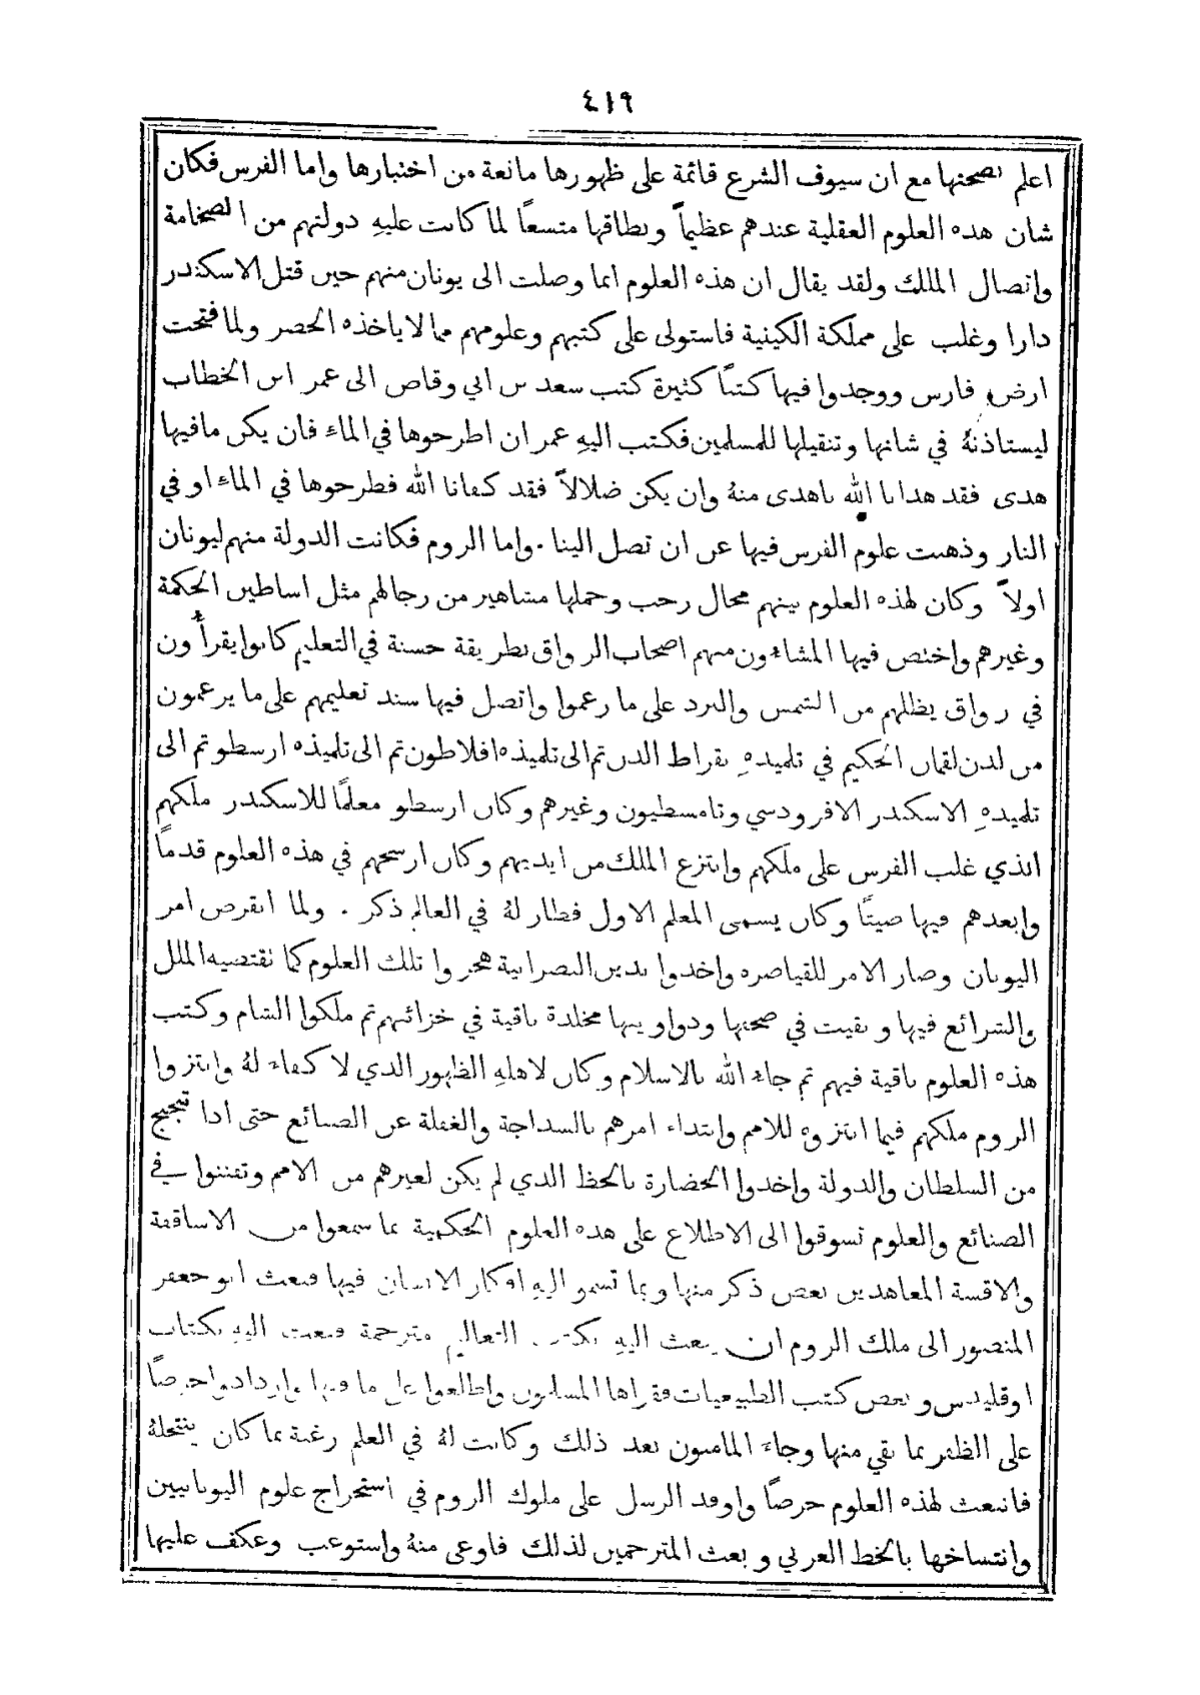 ٤١٩
اعلم بصحتها مع ان سيوف الشرع قائمة على ظهورها مانعة من اختبارها واما الفرس فكان
شان هذه العلوم العقلية عندهم عظيماً ونطاقها متسعًا لما كانت عليهِ دولتهم من الضخامة
واتصال الملك ولقد يقال ان هذه العلوم انما وصلت الى يونان منهم حين قتل الاسكندر
دارا وغلب على مملكة الكينية فاستولى على كتبهم وعلومهم مما لا ياخذه الحصر ولما فتحت
ارض فارس ووجدوا فيها كتبًا كثيرة كتب سعد بن ابي وقاص الى عمر ابن الخطاب
ليستاذنهُ في شانها وتنقيلها للمسلمين فكتب اليهِ عمر ان اطرحوها في الماء فان يكن ما فيها
هدى فقد هدانا الله باهدى منهُ وان يكن ضلالاً فقد كفانا الله فطرحوها في الماء او في
النار وذهبت علوم الفرس فيها عن ان تصل الينا . واما الروم فكانت الدولة منهم ليونان
اولاً وكان لهذه العلوم بينهم مجال رحب وحملها مشاهير من رجالهم مثل اساطين الحكمة
وغيرهم واختص فيها المشاءون منهم اصحاب الرواق بطريقة حسنة في التعليم كانوا يقرأون
في رواق يظللهم من الشمس والبرد على ما زعموا واتصل فيها سند تعليمهم على ما يزعمون
من لدن لقمان الحكيم في تلميذهِ بقراط الدن ثم الى تلميذه افلاطون ثم الى تلميذه ارسطو ثم الى
تلميذهِ الاسكندر الافرودسي وتامسطيون وغيرهم وكان ارسطو معلمًا للاسكندر ملكهم
الذي غلب الفرس على ملكهم وانتزع الملك من ايديهم وكان ارسخهم في هذه العلوم قدمًا
وابعدهم فيها صيتًا وكان يسمى المعلم الاول فطار لهُ في العالم ذكر . ولما انقرض امر
اليونان وصار الامر للقياصره واخذوا بدين النصرانية هجروا تلك العلوم كما تقتضيه الملل
والشرائع فيها وبقيت في صحفها ودواوينها مخلدة باقية في خزائنهم ثم ملكوا الشام وكتب
هذه العلوم باقية فيهم ثم جاء الله بالاسلام وكان لاهلهِ الظهور الذي لا كفاء لهُ وابتزوا
الروم ملكهم فيما ابتزوه للامم وابتداء امرهم بالسذاجة والغفلة عن الصنائع حتى اذا تبجبج
من السلطان والدولة واخذوا الحضارة بالحظ الذي لم يكن لغيرهم من الامم وتفننوا في
الصنائع والعلوم تشوقوا الى الاطلاع على هذه العلوم الحكمية بما سمعوا من الاساقفة
والاقسة المعاهدين بعض ذكر منها وبما تسمو اليهِ افكار الانسان فيها فبعث ابو جعفر
المنصور الى ملك الروم ان يبعث اليهِ بكتب التعاليم مترجمة فبعث اليهِ بكتاب
اوقليدس وبعض كتب الطبيعيات فقراها المسلمون واطلعوا على ما فيها وازدادوا حرصًا
على الظفر بما بقي منها وجاء المامون بعد ذلك وكانت لهُ في العلم رغبة بما كان ينتحلهُ
فانبعث لهذه العلوم حرصًا واوفد الرسل على ملوك الروم في استخراج علوم اليونانيين
وانتساخها بالخط العربي وبعث المترجمين لذلك فاوعى منهُ واستوعب وعكف عليها